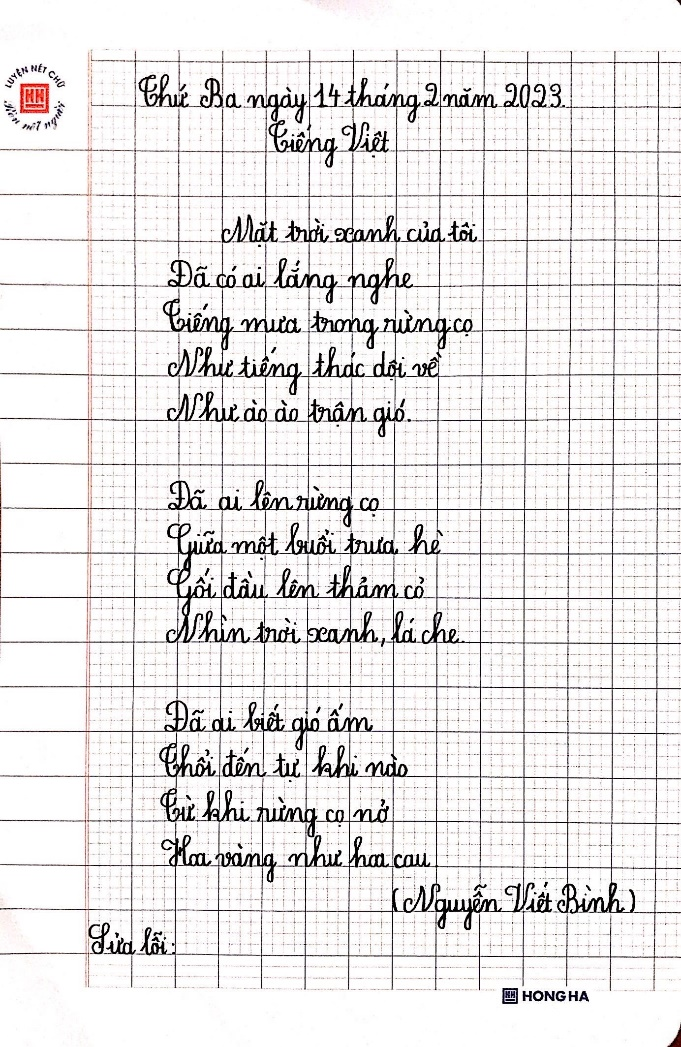 LUYỆN NÉT CHỮ
Rèn nết người
Thứ Ba ngày 14 tháng 2 năm 2023.
Tiếng Việt
Mặt trời xanh của tôi
Đã có ai lắng nghe
Tiếng mưa trong rừng cọ
Như tiếng thác dội về
Như ào ào trận gió.
Đã ai lên rừng cọ
Giữa một buổi trưa hè
Gối đầu lên thảm cỏ
Nhìn trời xanh, lá che.
Đã ai biết gió ấm
Thổi đến tự khi nào
Từ khi rừng cọ nở
Hoa vàng như hoa cau
(Nguyễn Viết Bình)
Sửa lỗi:
HONG HA